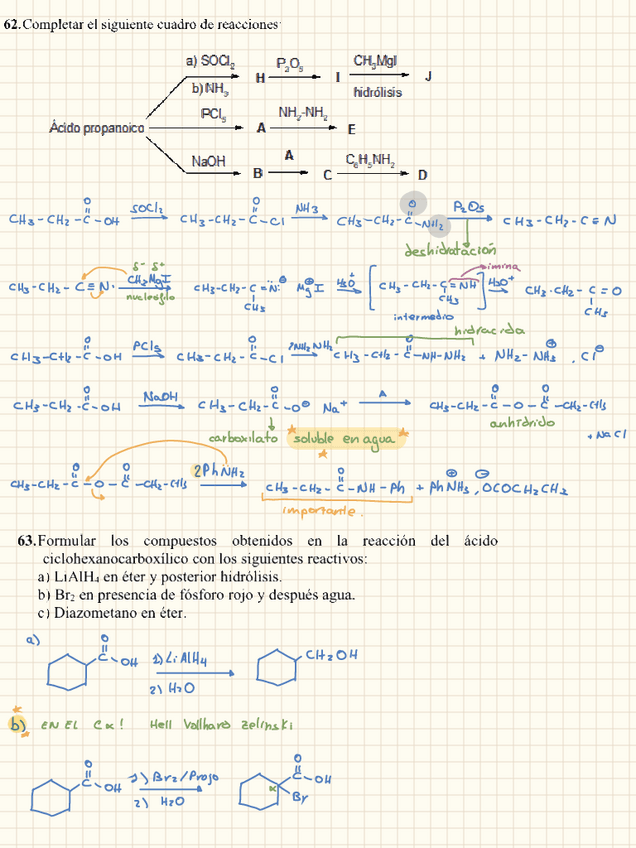 62.Completar el siguiente cuadro de reacciones:
a) SOCl₂ P₂O₅ CH₃MgI
H I J
b) NH₃ hidrólisis
PCl₅ NH₂-NH₂
Ácido propanoico A E
NaOH A C₆H₅NH₂
B C D
CH₃-CH₂-C(=O)-OH SOCl₂ CH₃-CH₂-C(=O)-Cl NH₃ CH₃-CH₂-C(=O)-NH₂ P₂O₅ CH₃-CH₂-C≡N
deshidratación
CH₃-CH₂-C≡N: δ- δ+ CH₃MgI nucleófilo CH₃-CH₂-C=N:⊖ CH₃ ⊕MgI H₃O⁺ [CH₃-CH₂-C=NH CH₃] imina H₃O⁺ CH₃-CH₂-C=O CH₃
intermedio
hidracida
CH₃-CH₂-C(=O)-OH PCl₅ CH₃-CH₂-C(=O)-Cl 2NH₂NH₂ CH₃-CH₂-C(=O)-NH-NH₂ + NH₂-NH₃⊕, Cl⊖
CH₃-CH₂-C(=O)-OH NaOH CH₃-CH₂-C(=O)-O⊖ Na⁺ A CH₃-CH₂-C(=O)-O-C(=O)-CH₂-CH₃
carboxilato soluble en agua anhídrido + NaCl
CH₃-CH₂-C(=O)-O-C(=O)-CH₂-CH₃ 2PhNH₂ CH₃-CH₂-C(=O)-NH-Ph + PhNH₃⊕, ⊖OCOCH₂CH₂
importante.
63.Formular los compuestos obtenidos en la reacción del ácido
ciclohexanocarboxílico con los siguientes reactivos:
a) LiAlH₄ en éter y posterior hidrólisis.
b) Br₂ en presencia de fósforo rojo y después agua.
c) Diazometano en éter.
a) C(=O)-OH 1) LiAlH₄ 2) H₂O CH₂OH
b) EN EL Cα! Hell Vollhard Zelinski
C(=O)-OH 1) Br₂/Projo 2) H₂O α C(=O)-OH Br